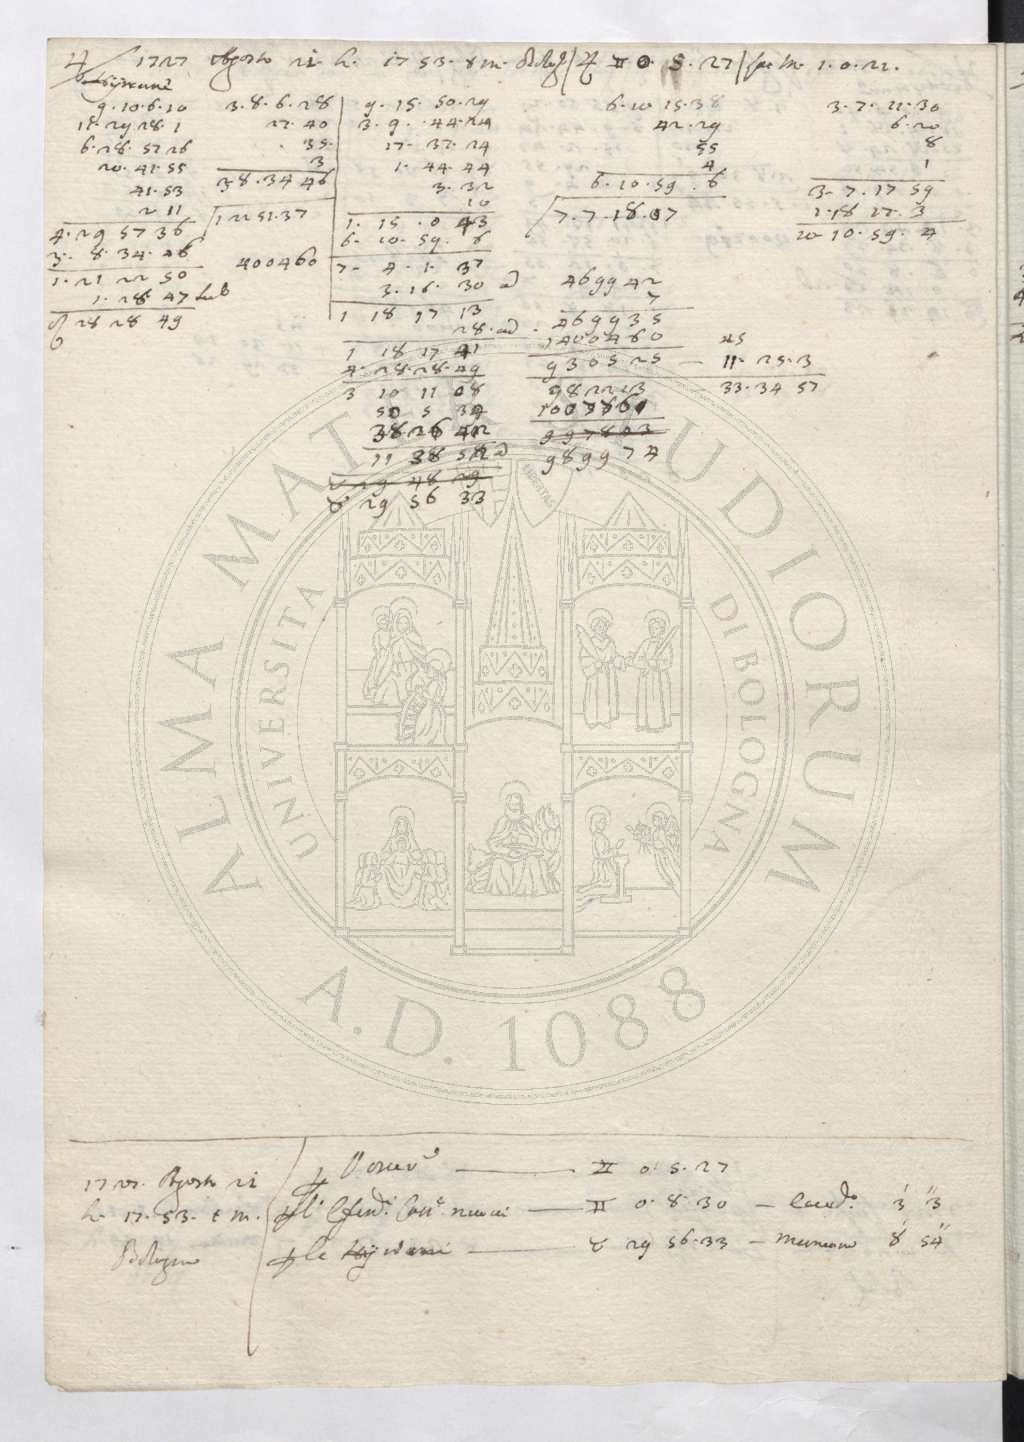 ♃ 1727 Agosto 21. h. 17 53. t m. Bolog. ♃ ♊ 0. 5. 27 lat. M. 1. 0. 21.
9. 10. 6. 10   3. 8. 6. 28   9. 15. 50. 29   6. 10 15. 38   3. 7. 11. 30
11. 29 28. 1   27. 40   3. 9. 44. 24   42. 29   6. 20
6. 28. 57 26   35.   17. 37. 24   55   8
20. 41. 55   3   1. 44. 44   4   1
41. 53   3. 8. 34 46   3. 32   6. 10. 59. 6   3. 7. 17 59
2 11   1 22 51. 37   10   7. 7. 18. 07   1. 18 17. 3
4. 29 57 36   1. 15. 0 43   10 10. 59. 4
3. 8. 34. 46   6. 10. 59. 6
1. 21 22 50   400460   7. 4. 1. 37   469942
1. 28 47 sub   3. 16. 30 ad   7
♉ 28 28 49   1 18 17 13   469935
28. ad   400460   45
1 18 17 41   930525 — 11. 25. 3
4. 28. 28. 49   982213   33. 34 57
3 10 11 08   1007861
50 5 34   997803
38 26 42   989974
11 38 52 ad
♉ 29 48 29
♉ 29 56 33
1727. Agosto 21   ♃ Osser. — ♊ 0. 5. 27
h. 17. 53. t m.   — ♊ 0. 8. 30 — Eccede 3' 3"
Bologna   — ♉ 29 56. 33 — mancano 8' 54"
ALMA MATER STUDIORUM
UNIVERSITÀ DI BOLOGNA
LIBERTAS
A.D. 1088